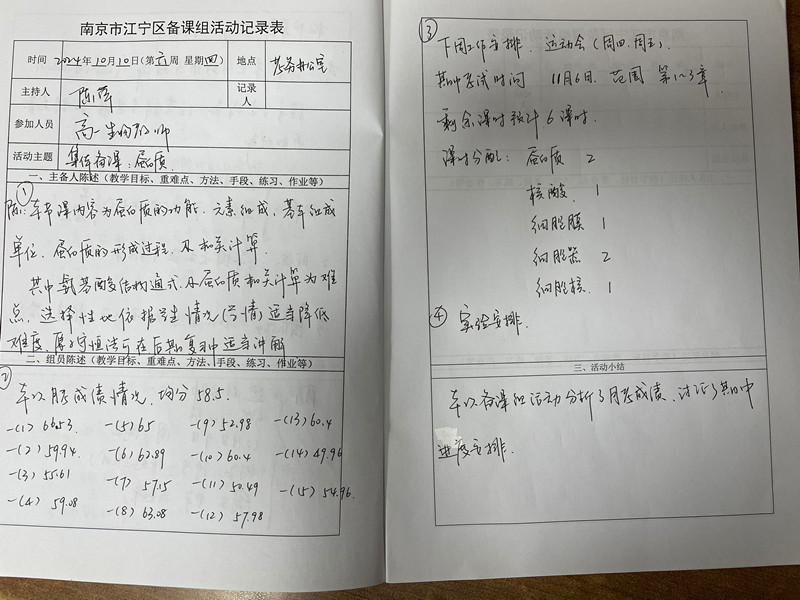 南京市江宁区备课组活动记录表
时间 2024年10月10日(第六周 星期四) 地点 教务办公室
主持人 陈萍 记录人
参加人员 高一生物教师
活动主题 集体备课:蛋白质.
一、主备人陈述(教学目标、重难点、方法、手段、练习、作业等)
①
陈:本节课内容为蛋白质的功能.元素组成,基本组成
单位.蛋白质的形成过程.及相关计算.
其中氨基酸结构通式及蛋白质相关计算为难
点.选择性地依据学生情况(学情)适当降低
难度.原子守恒法可在后期复习中适当讲解
二、组员陈述(教学目标、重难点、方法、手段、练习、作业等)
②
本次月考成绩情况.均分58.5.
-(1) 66.53 -(5) 65 -(9) 52.98 -(13) 60.4
-(2) 59.94 -(6) 62.89 -(10) 60.4 -(14) 49.96
-(3) 55.61 -(7) 57.15 -(11) 50.49 -(15) 54.96
-(4) 59.08 -(8) 63.08 -(12) 57.98
③
下周工作安排.运动会(周四.周五).
期中考试时间 11月6日.范围 第1~3章
剩余课时预计6课时.
课时分配:蛋白质 2
核酸 1
细胞膜 1
细胞器 2
细胞核 1
④ 实验安排.
三、活动小结
本次备课组活动分析了月考成绩.讨论了期中
进度安排.